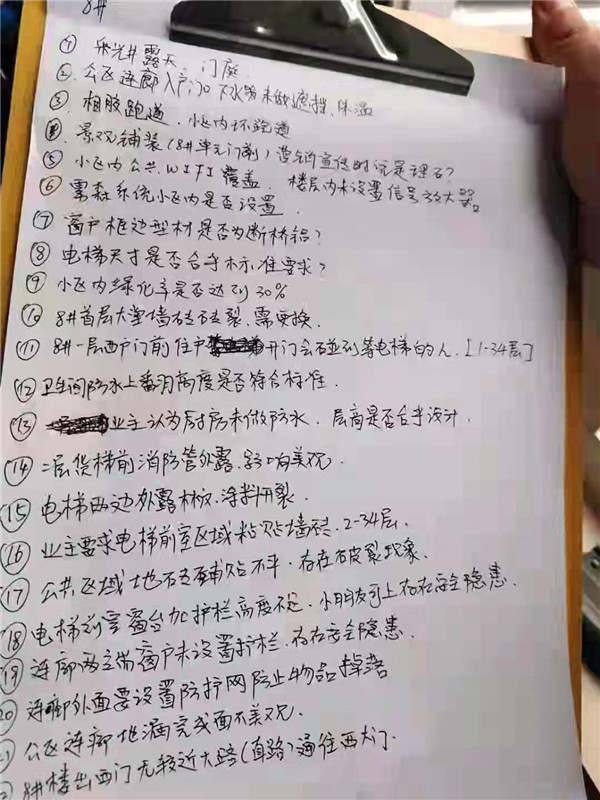 8#
① 采光井露天、门庭
② 公区连廊入户门口下水管未做遮挡、保温
③ 相胶跑道、小区内环跑道
④ 景观铺装(8#单元门前)营销宣传时说是理石?
⑤ 小区内公共WIFI覆盖、楼层内未设置信号放大器
⑥ 雾森系统小区内是否设置
⑦ 窗户框边型材是否为断桥铝?
⑧ 电梯尺寸是否合乎标准要求?
⑨ 小区内绿化率是否达到30%
⑩ 8#首层大堂墙砖破裂、需更换.
⑪ 8#一层西户门前住户开门会碰到等电梯的人.[1-34层]
⑫ 卫生间防水上翻高度是否符合标准.
⑬ 业主认为厨房未做防水.层高是否合乎设计.
⑭ 二层货梯前消防管外露、影响美观.
⑮ 电梯两边外露木板、涂料开裂.
⑯ 业主要求电梯前室区域粘贴墙砖.2-34层.
⑰ 公共区域地砖铺贴不平、存在破裂现象.
⑱ 电梯前室窗台加护栏高度不足、小朋友可上存在安全隐患.
⑲ 连廊两立端窗户未设置护栏、存在安全隐患.
⑳ 连廊外面要设置防护网防止物品掉落
公区连廊地漏完成面不美观.
8#楼出西门无较近大路(直路)通往西大门.